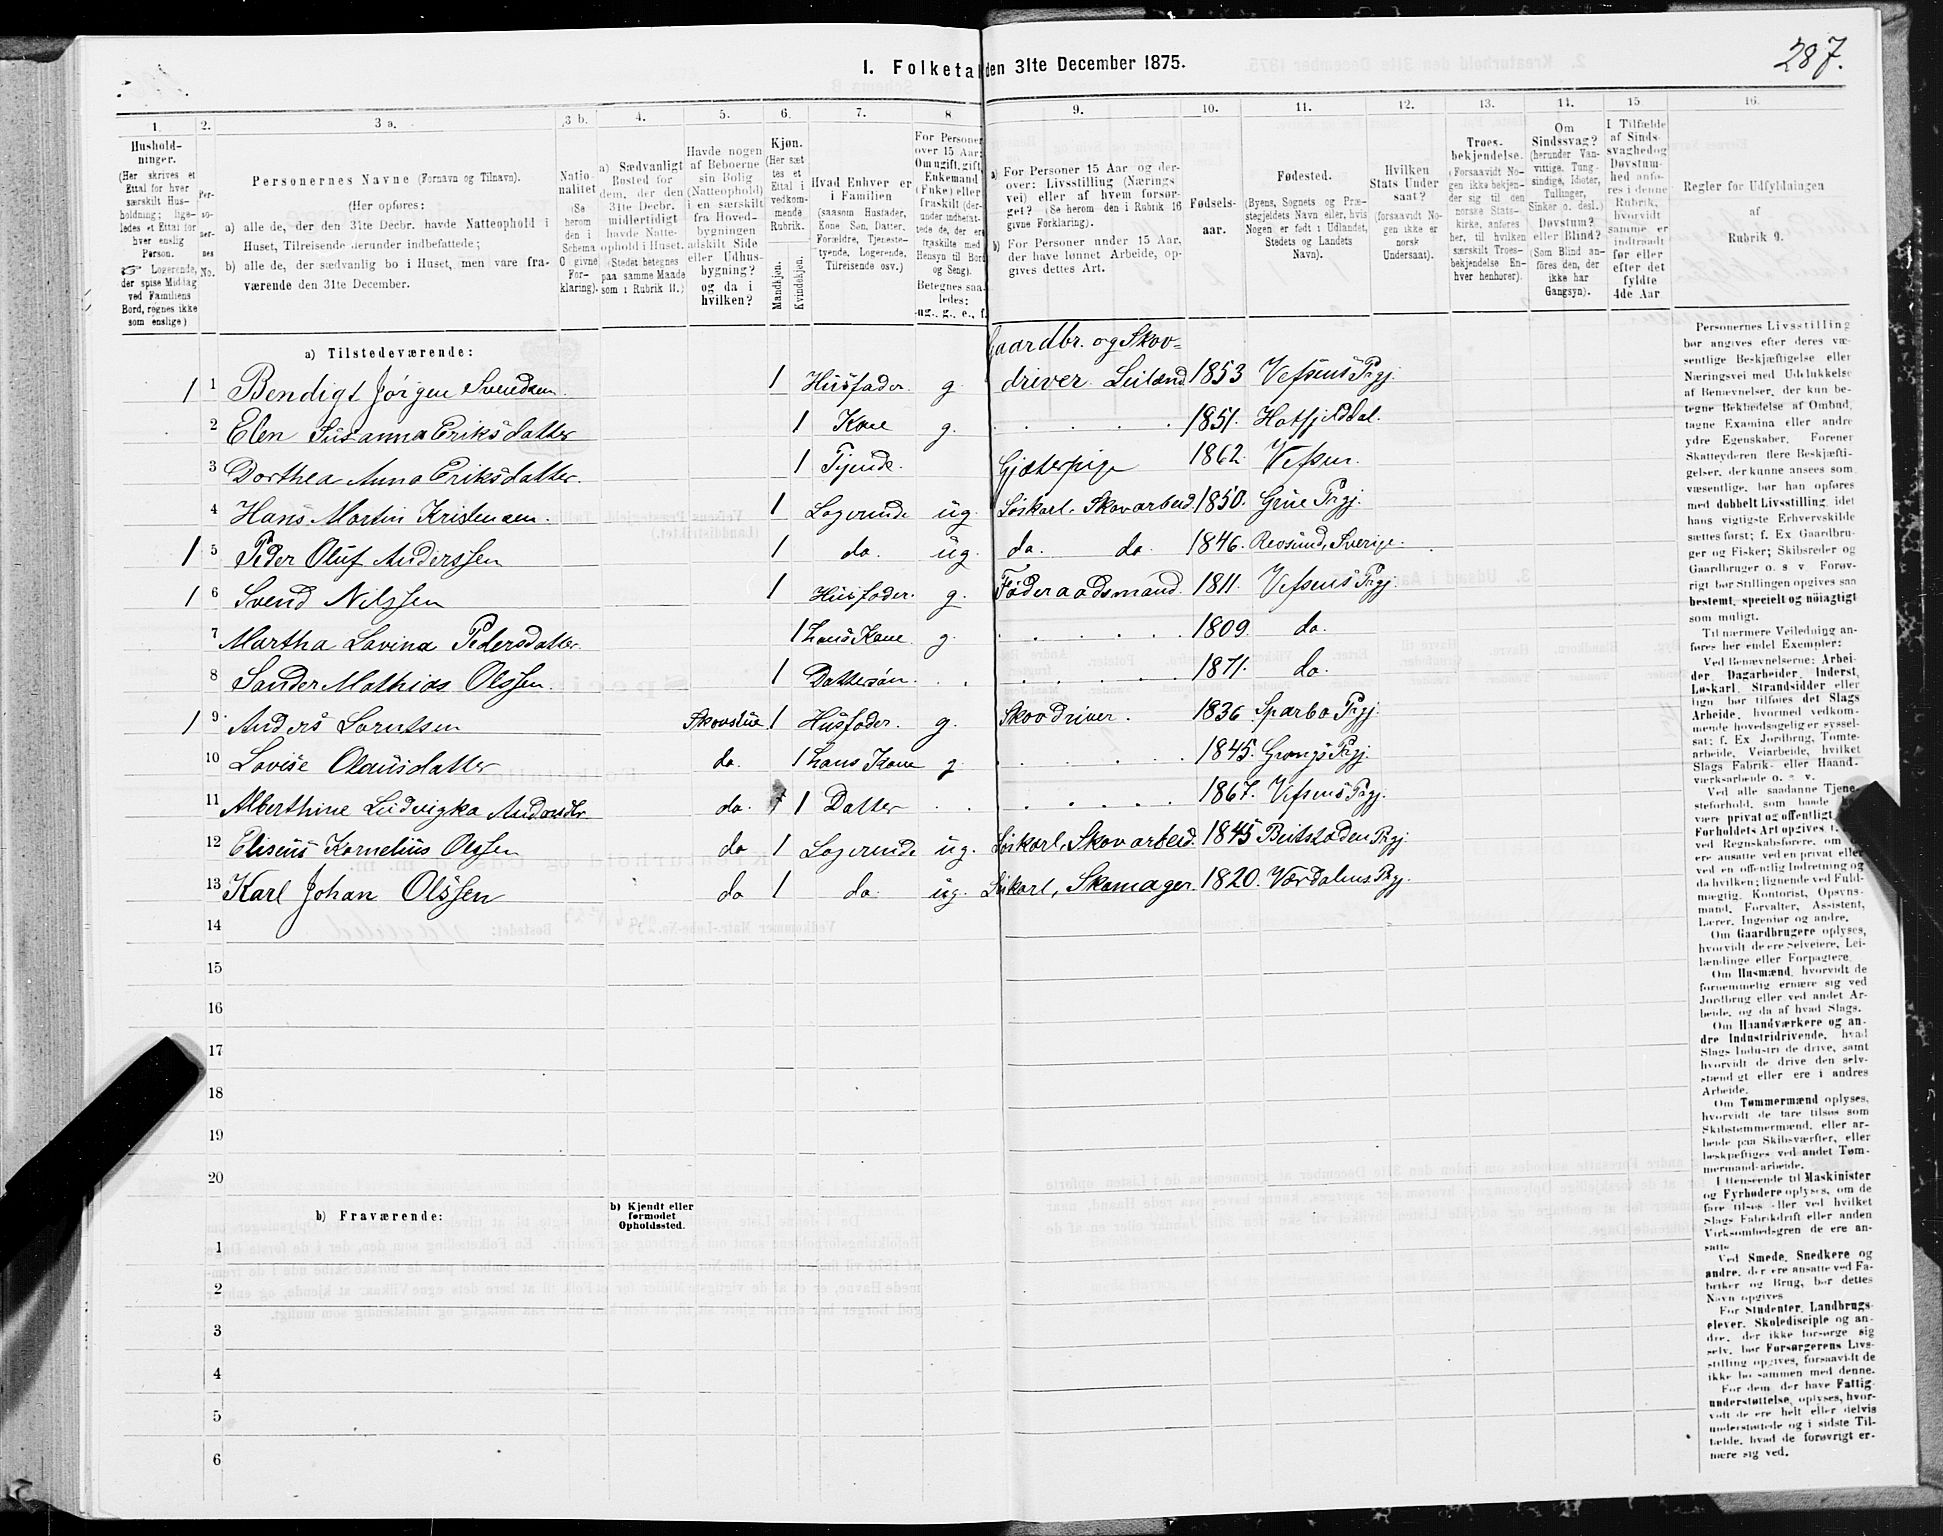 287.
I. Folketal den 31te December 1875.
1. 2. 3 a. 3 b. 4. 5. 6. 7. 8 9. 10. 11. 12. 13. 14. 15 16.
Hushold-
ninger.
(Her skrives et
Ettal for hver
særskilt Hus-
holdning; lige-
ledes et Ettal for
hver enslig
Person.
☞ Logerende,
der spise Middag
ved Familiens
Bord, regnes ikke
som enslige)
Per-
so-
ner-
nes
No.
Personernes Navne (Fornavn og Tilnavn).
(Her opføres:
a) alle de, der den 31te Decbr. havde Natteophold i
Huset, Tilreisende derunder indbefattede;
b) alle de, der sædvanlig bo i Huset, men vare fra-
værende den 31te December.
Natio-
nalitet
(Se
herom
den i
Schema
O givne
For-
klaring).
a) Sædvanligt
Bosted for
dem, der den
31te Decbr.
midlertidigt
havde Natte-
ophold i Huset.
(Stedet betegnes
paa samme Maade
som i Rubrik 11.)
Havde nogen
af Beboerne
sin Bolig
(Natteophold)
i en særskilt
fra Hoved-
bygningen
adskilt Side
eller Udhus-
bygning?
og da i
hvilken?
Kjøn.
(Her sæt
tes et
Ettal i
vedkom-
mende
Rubrik.
Mandkjøn.
Kvindekjøn.
Hvad Enhver er
i Familien
(saasom Husfader,
Kone Søn, Datter,
Forældre, Tjeneste-
tyende, Logerende,
Tilreisende osv.)
For Personer
over 15 Aar:
Om ugift, gift,
Enkemand
(Enke) eller
fraskilt
Betegnes saa-
ledes:
ug., g., e., f.
a) For Personer 15 Aar og der-
over: Livsstilling (Nærings
vei) eller af hvem forsør-
get? (Se herom den i Rubrik 16
givne Forklaring).
b) For Personer under 15 Aar,
der have lønnet Arbeide, op-
gives dettes Art.
Fødsels-
aar.
Fødested.
(Byens, Sognets og Præ-
stegjeldets Navn eller, hvis
Nogen er født i Udlandet,
Stedets og Landets
Navn).
Hvilken
Stats Under
saat?
(forsaavidt No-
gen ikke er
norsk
Undersaat).
Troes-
bekjendelse.
(Forsaavidt No-
gen ikke bekjen-
der sig til den
norske Stats-
kirke, anføres
her, til hvilken
særskilt Troes-
bekjendelse En-
hver henhører).
Om
Sindssvag?
(herunder Van-
vittige, Tung-
sindige, Idioter,
Tullinger,
Sinker o. desl.)
Døvstum?
eller Blind?
(Som Blind an-
føres den, der
ikke har
Gangsyn).
I Tilfælde
af Sinds-
svaghed og
Døvstum-
hed anfø-
res i denne
Rubrik,
hvorvidt
samme er
indtraadt
før eller
efter det
fyldte
4de Aar
Regler for Udfyldningen
af
Rubrik 9.
a) Tilstedeværende:
Gaardbr. og Skov=
1 1 Bendigt Jørgen Svendsen. 1 Husfader. g. driver Leilænd 1853 Vefsens Prgj.
2 Elen Susanna Eriksdatter 1 Kone g. 1851. Hatfjelddal.
3 Dorthea Anna Eriksdatter. 1 Tjende. Gjæterpige 1862. Vefsen.
4 Hans Martin Kristensen. 1 Logerende ug. Løskarl, Skovarbeid. 1850. Grue Prgj.
1 5 Peder Oluf Anderssen 1 do. ug. do. do. 1846. Revsund, Sverige.
1 6 Svend Nilssen 1 Husfader. g. Føderaadsmand. 1811. Vefsens Prgj.
7 Martha Lavina Pedersdatter. 1 hans Kone g. 1809. do.
8 Sander Mathias Olssen. 1 Dattersøn. 1871. do.
1 9. Anders Larntsen Skovstue 1 Husfader. g. Skovdriver. 1836 Sparbo Prgj.
10 Lovise Olausdatter do. 1 hans Kone g. 1845. Grongs Prgj.
11 Alberthine Ludvigka Andersdtr. do. 1 Datter 1867. Vefsens Prgj.
12 Eliseus Kornelius Olssen do 1 Logerende ug. Løskarl, Skovarbeid. 1845 Beitstaden Prgj.
13 Karl Johan Olssen do 1 do. ug. Løskarl, Skomager. 1820. Værdalens Prgj.
14
15
16
17
18
19
20
b) Fraværende:
b) Kjendt eller
formodet
Opholdssted.
1
2
3
4
5
6
Personernes Livsstilling
bør angives efter deres væ-
sentlige Beskjæftigelse eller
Næringsvei med Udelukkelse
af Benævnelser, der kun be-
tegne Beklædelse af Ombud,
tagne Examina eller andre
ydre Egenskaber. Forener
Skatteyderen flere Beskjæfti-
gelser, der kunne ansees som
væsentlige, bør han opføres
med dobbelt Livsstilling, idet
hans vigtigste Erhvervskilde
sættes først; f. Ex Gaardbru-
ger og Fisker; Skibsreder og
Gaardbruger o. s v. Forøv-
rigt bør Stillingen opgives saa
bestemt, specielt og nöiagtigt
som muligt.
Til nærmere Veiledning an-
føres her endel Exempler:
Ved Benævnelserne: Arbei-
der, Dagarbeider, Inderst,
Løskarl, Strandsidder eller
lign bør tilføies det Slags
Arbeide, hvormed vedkom-
mende hovedsagelig er syssel-
sat; f. Ex Jordbrug, Tomte-
arbeide, Veiarbeide, hvilket
Slags Fabrik- eller Haand-
værksarbeide o. s v.
Ved alle saadanne Tjene-
steforhold, som baade
være privat og offentligt,
Forholdets Art opgives,
ved Regnskabsførere, om
ere ansatte ved en privat eller
ved en offentlig Indretning og
da hvilken; lignende ved Fuld-
mægtig, Kontorist, Opsyns-
mand, Forvalter, Assistent,
Lærer, Ingeniør og andre.
Om Gaardbrugere oplyses,
hvorvidt de ere Selveiere, Lei-
lændinge eller Forpagtere.
Om Husmænd, hvorvidt de
fornemmelig ernære sig ved
Jordbrug eller ved andet Ar-
beide, og da af hvad Slags.
Om Haandværkere og an-
dre Industridrivende, hvad
Slags Industri de drive, samt
hvorvidt de drive den selv-
stændigt eller ere i andres
Arbeide.
Om Tømmermænd oplyses,
hvorvidt de fare tilsøs som
Skibstømmermænd, eller ar-
beide paa Skibsværfter, eller
beskjæftiges ved andet Tøm-
mermandarbeide.
I Henseende til Maskinister
og Fyrbødere oplyses, om de
fare tilsøs eller ved hvilket
Slags Fabrikdrift eller anden
Virksomhedsgren de ere an-
satte
Ved Smede, Snedkere og
andre, der ere ansatte ved Fa-
briker og Brug, bør dettes
Navn opgives
For Studenter, Landbrugs-
elever, Skoledisciple og an-
dre, der ikke forsørge sig
selv, bør Forsørgerens Livs-
stilling opgives, forsaavidt de
ikke bo sammen med denne.
For dem, der have Fattig-
understøttelse, oplyses, hvor-
vidt de ere helt eller delvis
understøttede og i sidste Til-
fælde, hvad de forøvrigt er-
nære sig ved.